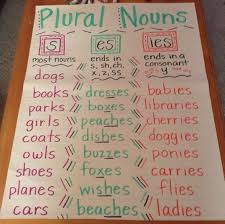 Plural Nouns
s es ies
most nouns ends in ends in a
s, sh, ch, consonant
x, z, ss y
dogs
books dresses babies
parks boxes libraries
girls peaches cherries
coats dishes doggies
owls buzzes ponies
shoes foxes carries
planes wishes flies
cars beaches ladies